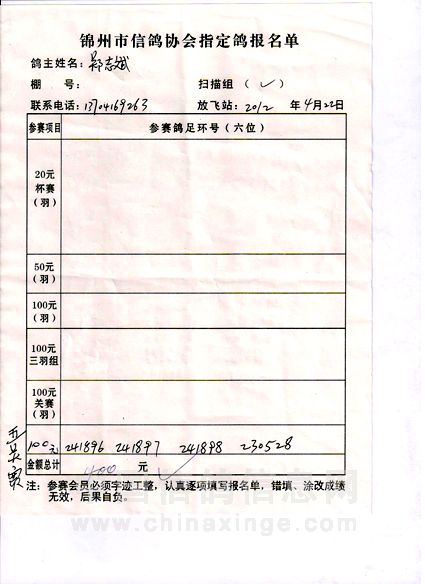 锦州市信鸽协会指定鸽报名单
鸽主姓名：郑志斌
棚 号： 扫描组（✓）
联系电话：13704169263 放飞站：2012 年4月22日
参赛项目 参赛鸽足环号（六位）
20元
杯赛
（羽）
50元
（羽）
100元
（羽）
100元
三羽组
100元
关赛
（羽）
100元 241896 241897 241898 230528
金额总计 400 元
注：参赛会员必须字迹工整，认真逐项填写报名单，错填、涂改成绩
无效，后果自负。
www.chinaxinge.com